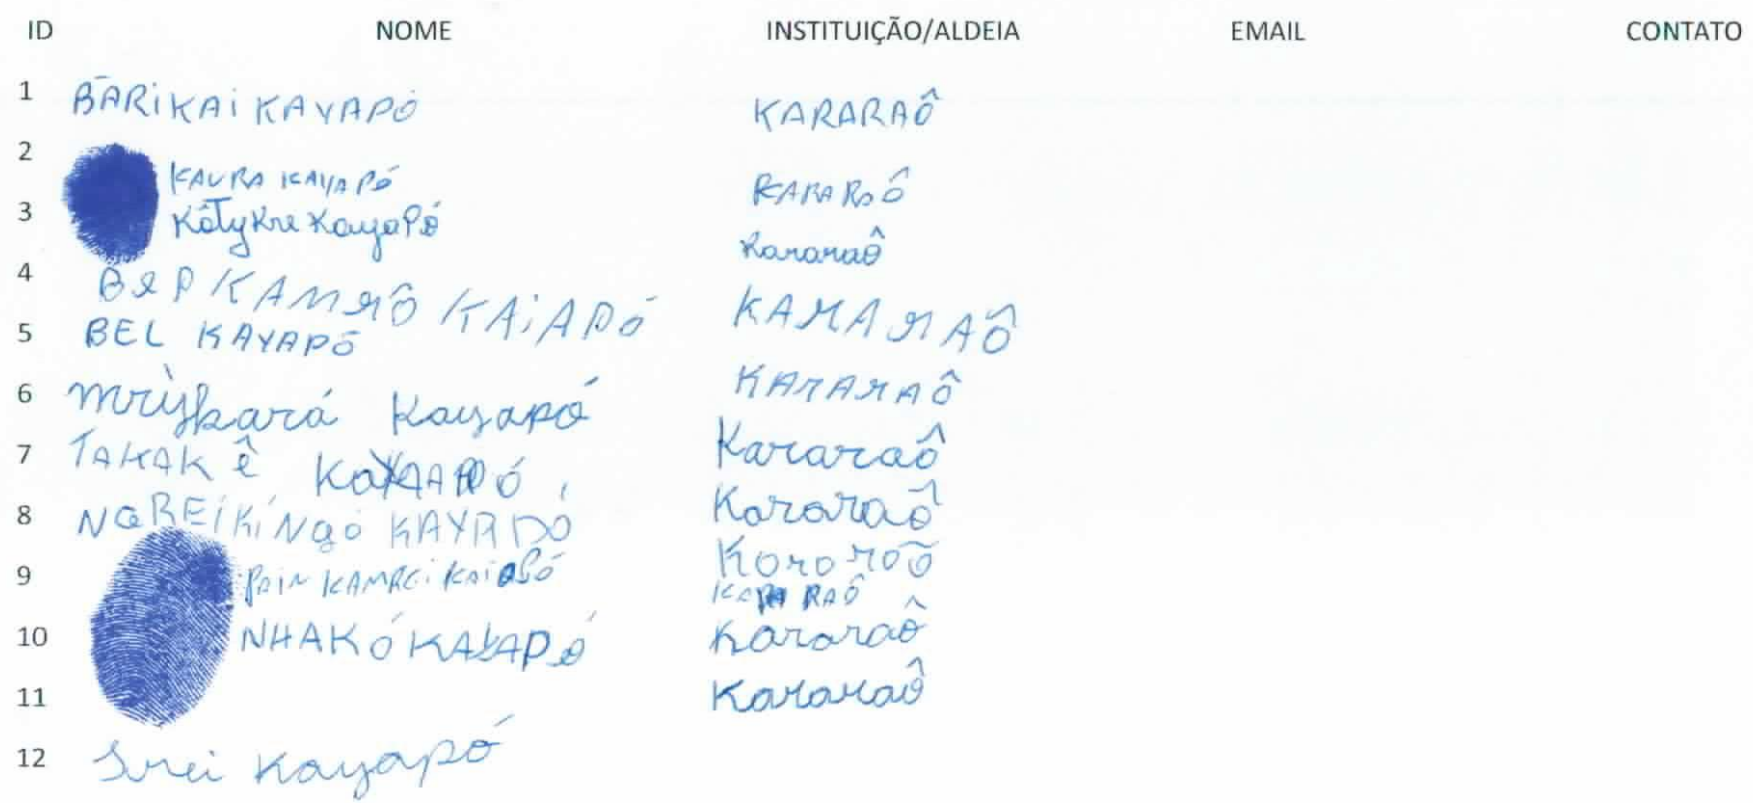 ID NOME INSTITUIÇÃO/ALDEIA EMAIL CONTATO
1 BĀRIKAI KAYAPÓ KARARAÔ
2 KAURA KAYAPÓ KARARAÔ
3 Kôtykre KayaPó Kararaô
4 BeP KAMRÔ KAiAPÓ KARARAÔ
5 BEL KAYAPÓ KARARAÔ
6 Kayapó
7 TAKAK ê KAYAPÓ Kararaô
8 NGREIKINgó KAYAPÓ Kararaô
9 KAMREi KAiAPÓ Kororoõ
KARARAÔ
10 NHAKÓ KAYAPÓ Kararaô
11 Kararaô
12 Kayapó